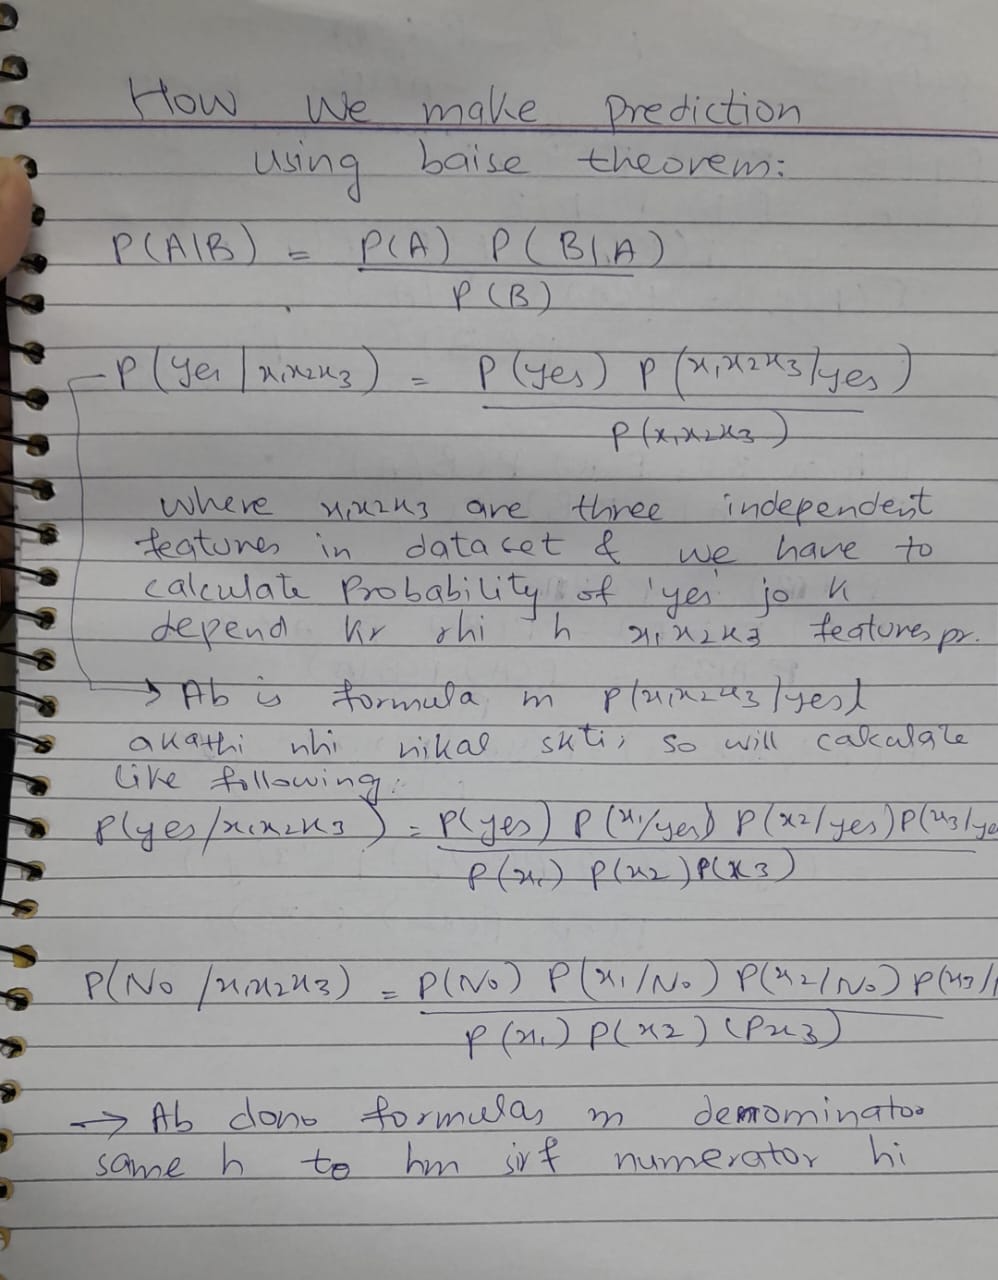 How we make prediction
using baise theorem:
P(A|B) = P(A) P(B|A)
P(B)
P(yes | x1x2x3) = P(yes) P(x1x2x3/yes)
P(x1x2x3)
where x1x2x3 are three independent
features in dataset & we have to
calculate Probability of 'yes' jo k
depend kr rhi h x1x2x3 features pr.
→ Ab is formula m P(x1x2x3/yes)
akathi nhi nikal skti, so will calculate
like following:
P(yes/x1x2x3) = P(yes) P(x1/yes) P(x2/yes) P(x3/ye
P(x1) P(x2) P(x3)
P(No/x1x2x3) = P(No) P(x1/No) P(x2/No) P(x3/
P(x1) P(x2) (Px3)
→ Ab dono formulas m denominator
same h to hm sirf numerator hi